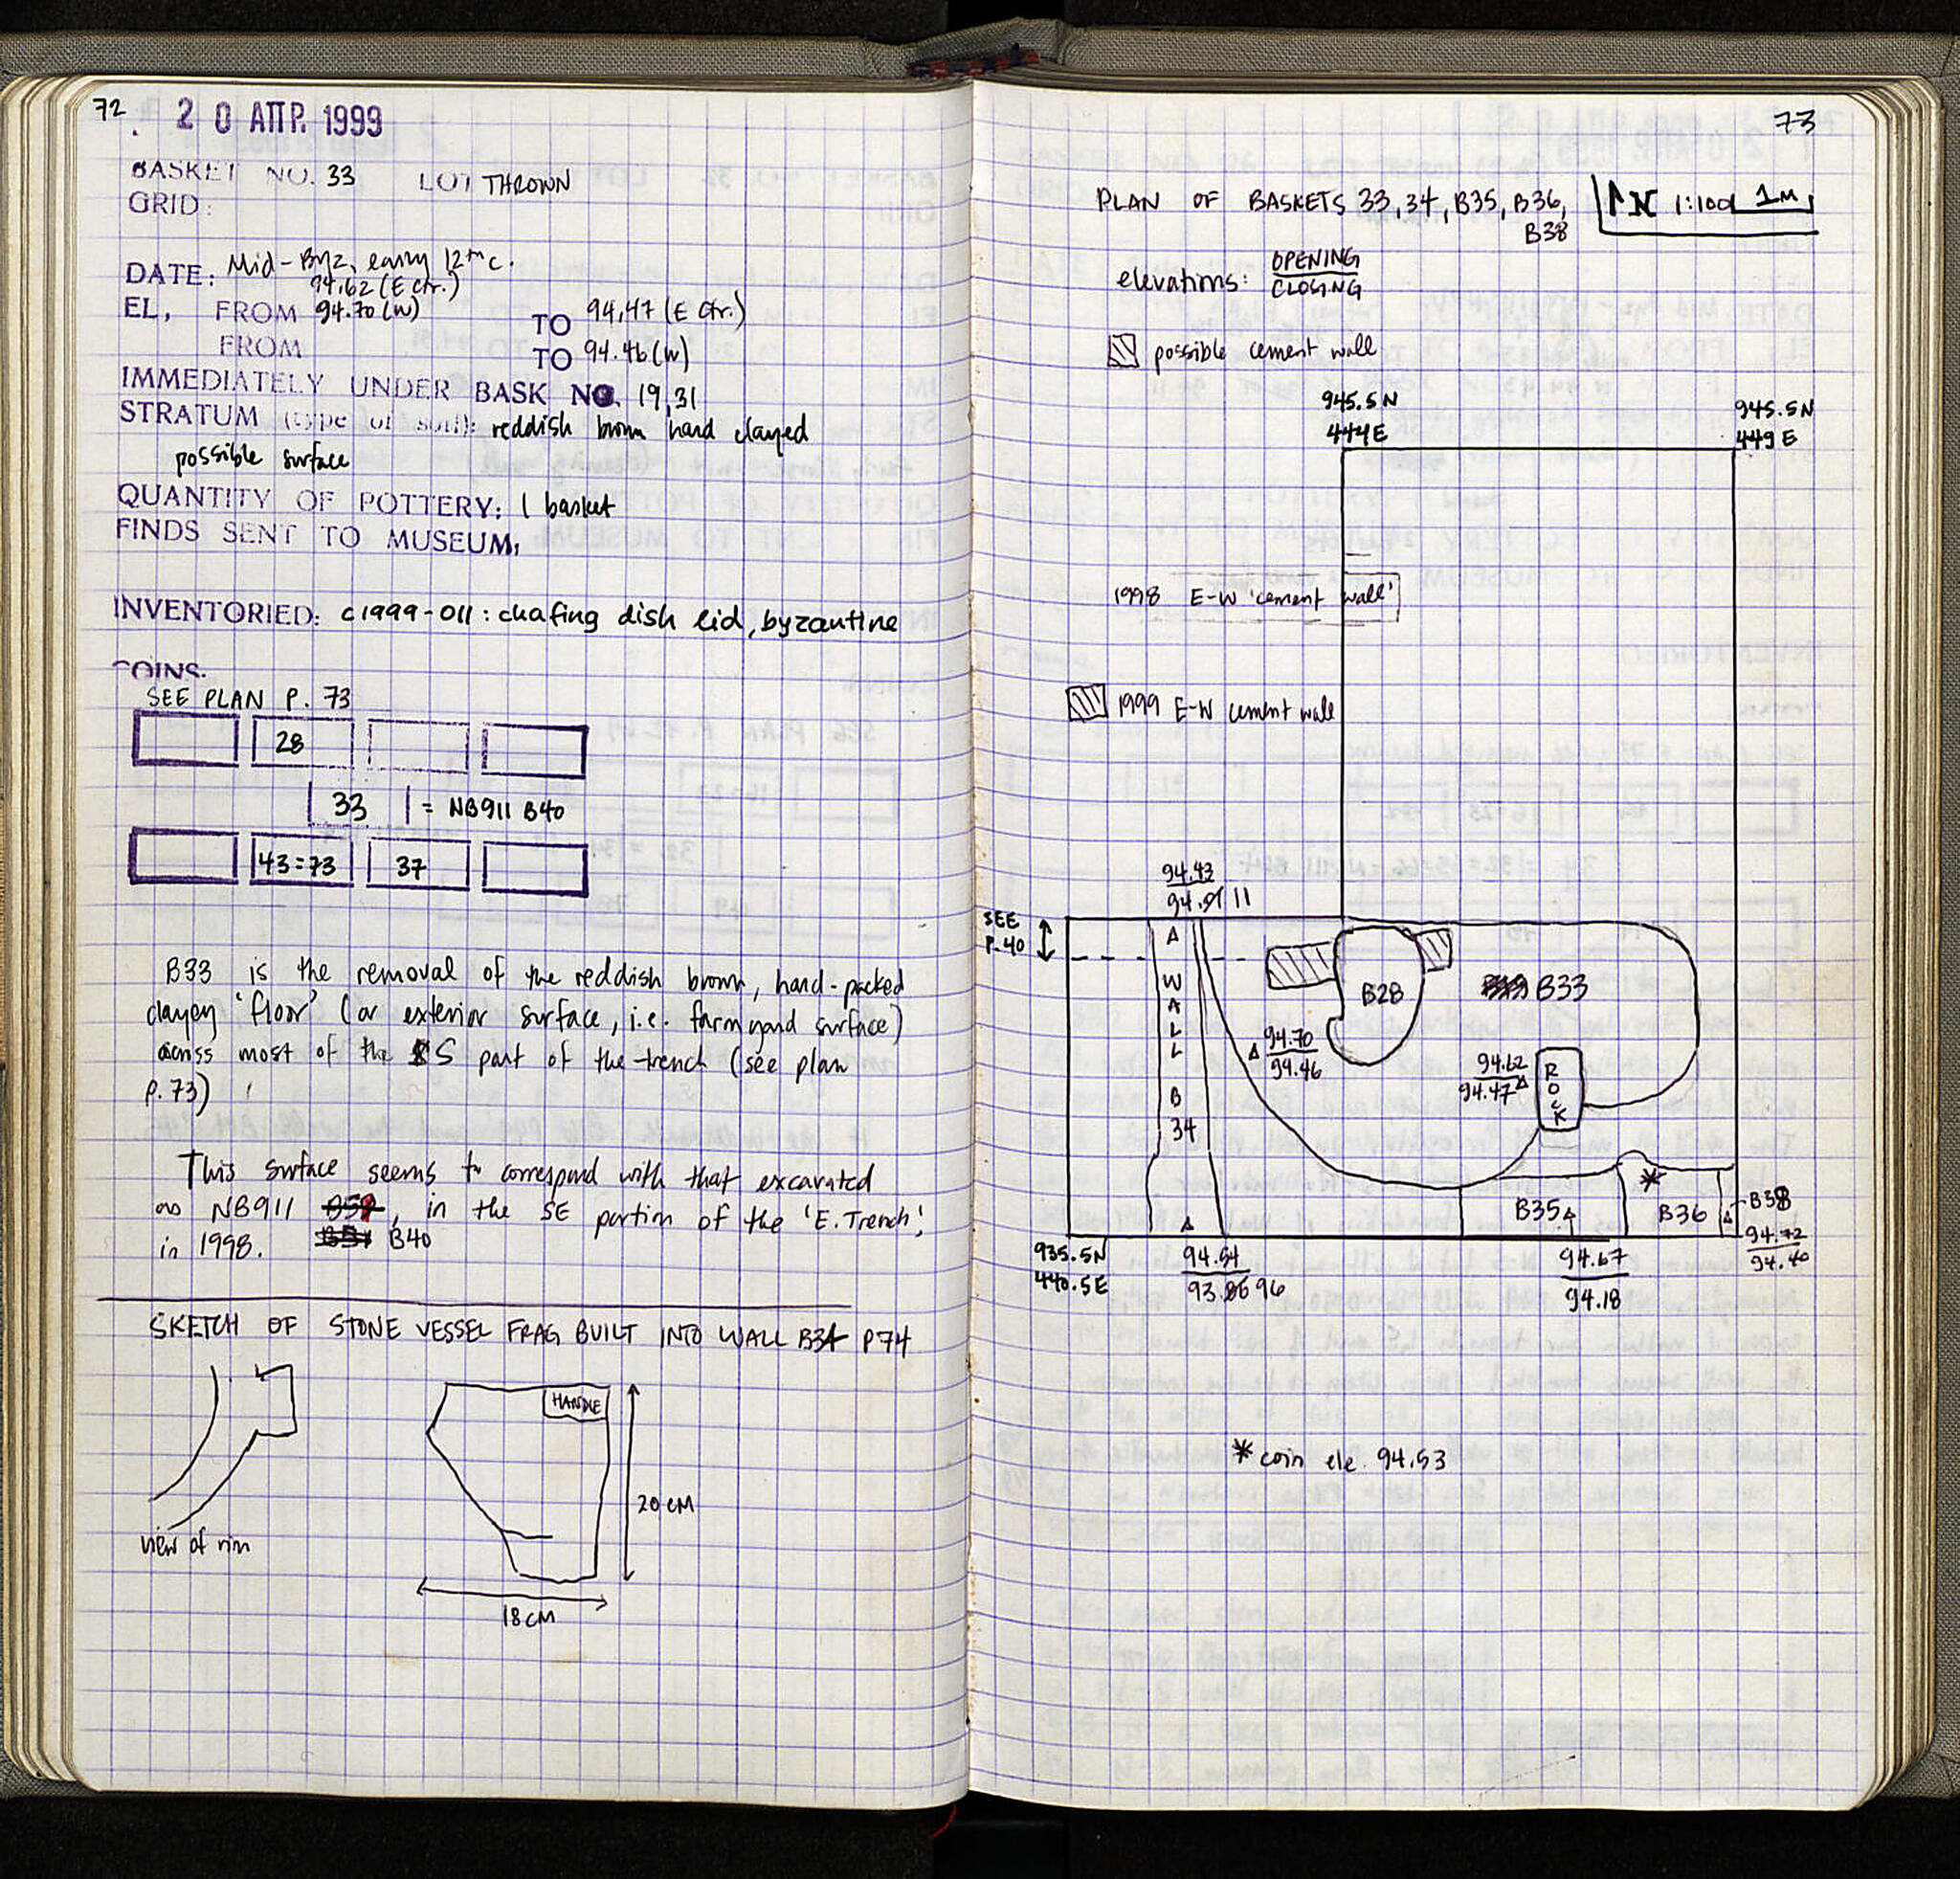 72
2 0 ΑΠΡ. 1999
BASKET NO. 33 LOT THROWN
GRID:
DATE: Mid-Byz, early 12th c.
94.62 (E ctr.)
EL, FROM 94.70 (W) TO 94.47 (E ctr.)
FROM TO 94.46 (W)
IMMEDIATELY UNDER BASK NO. 19,31
STRATUM (type of soil): reddish brown hard clayed
possible surface
QUANTITY OF POTTERY: 1 basket
FINDS SENT TO MUSEUM:
INVENTORIED: C1999-011: chafing dish lid, byzantine
COINS.
SEE PLAN P. 73
28
33 = NB911 B40
43=73 37
B33 is the removal of the reddish brown, hard-packed
clayey 'floor' (or exterior surface, i.e. farmyard surface)
across most of the S part of the trench (see plan
p.73)
This surface seems to correspond with that excavated
as NB911 , in the SE portion of the 'E. Trench',
in 1998. B40
SKETCH OF STONE VESSEL FRAG BUILT INTO WALL B34 P74
HANDLE
20 CM
view of rim
18 CM
73
PLAN OF BASKETS 33, 34, B35, B36,
B38
N 1:100 1M
elevations: OPENING
CLOSING
possible cement wall
945.5N
444E
945.5N
449E
1998 E-W 'cement wall'
1999 E-W cement wall
94.43
94.11
SEE
P.40
WALL B34
B28
B33
94.70
94.46
94.62
94.47
ROCK
*
B35
B36
B38
94.72
94.40
935.5N
440.5E
94.54
93.96
94.67
94.18
* coin ele. 94.53